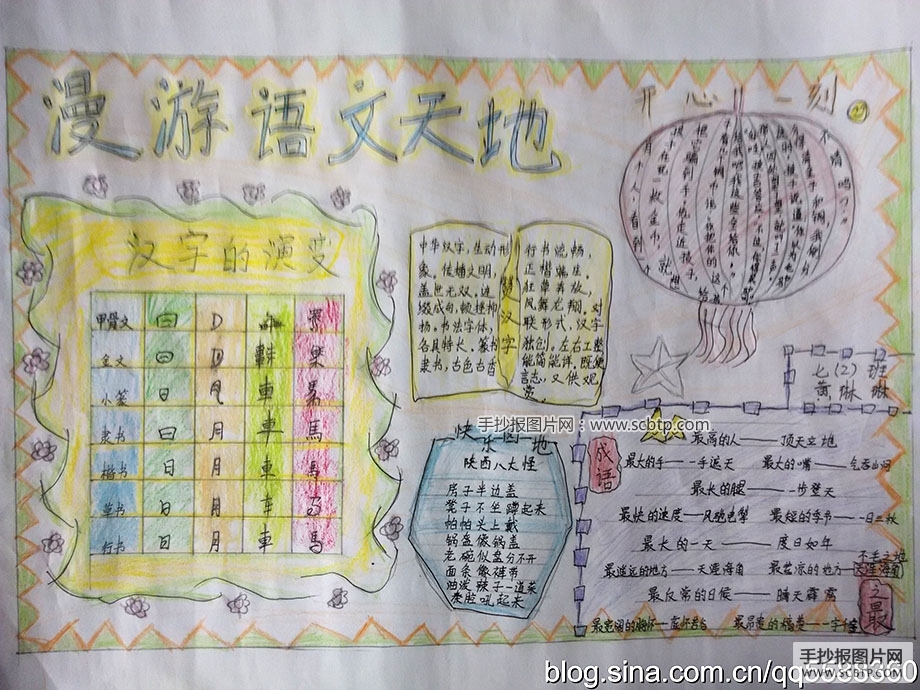 漫游语文天地
开心一刻
汉字的演变
甲骨文
金文
小篆
隶书
楷书
草书
行书
日 月 車 馬
中华汉字,生动形
象。传播文明,
盖世无双。连
缀成句,顿挫抑
扬。书法字体,
各具特长。篆书
隶书,古色古香
爱汉字
行书流畅,
正楷端庄。
狂草奔放,
凤舞龙翔。对
联形式,汉字
独创。左右工整
能简能详。既便
言志,又供观
赏。
七(2)班
黄琳琳
手抄报图片网:www.scbtp.com
快乐园地
陕西八大怪
房子半边盖
凳子不坐蹲起来
帕帕头上戴
锅盔像锅盖
老碗似盆分不开
面条像裤带
油泼辣子一道菜
秦腔吼起来
成语
之最
最高的人——顶天立地
最大的手——一手遮天 最大的嘴——气吞山河
最长的腿——一步登天
最快的速度——风驰电掣 最短的季节——一日三秋
最长的一天——度日如年
最遥远的地方——天涯海角 最荒凉的地方——不毛之地
最反常的气候——晴天霹雳
最宽阔的胸怀——虚怀若谷
手抄报图片网
www.scbtp.com